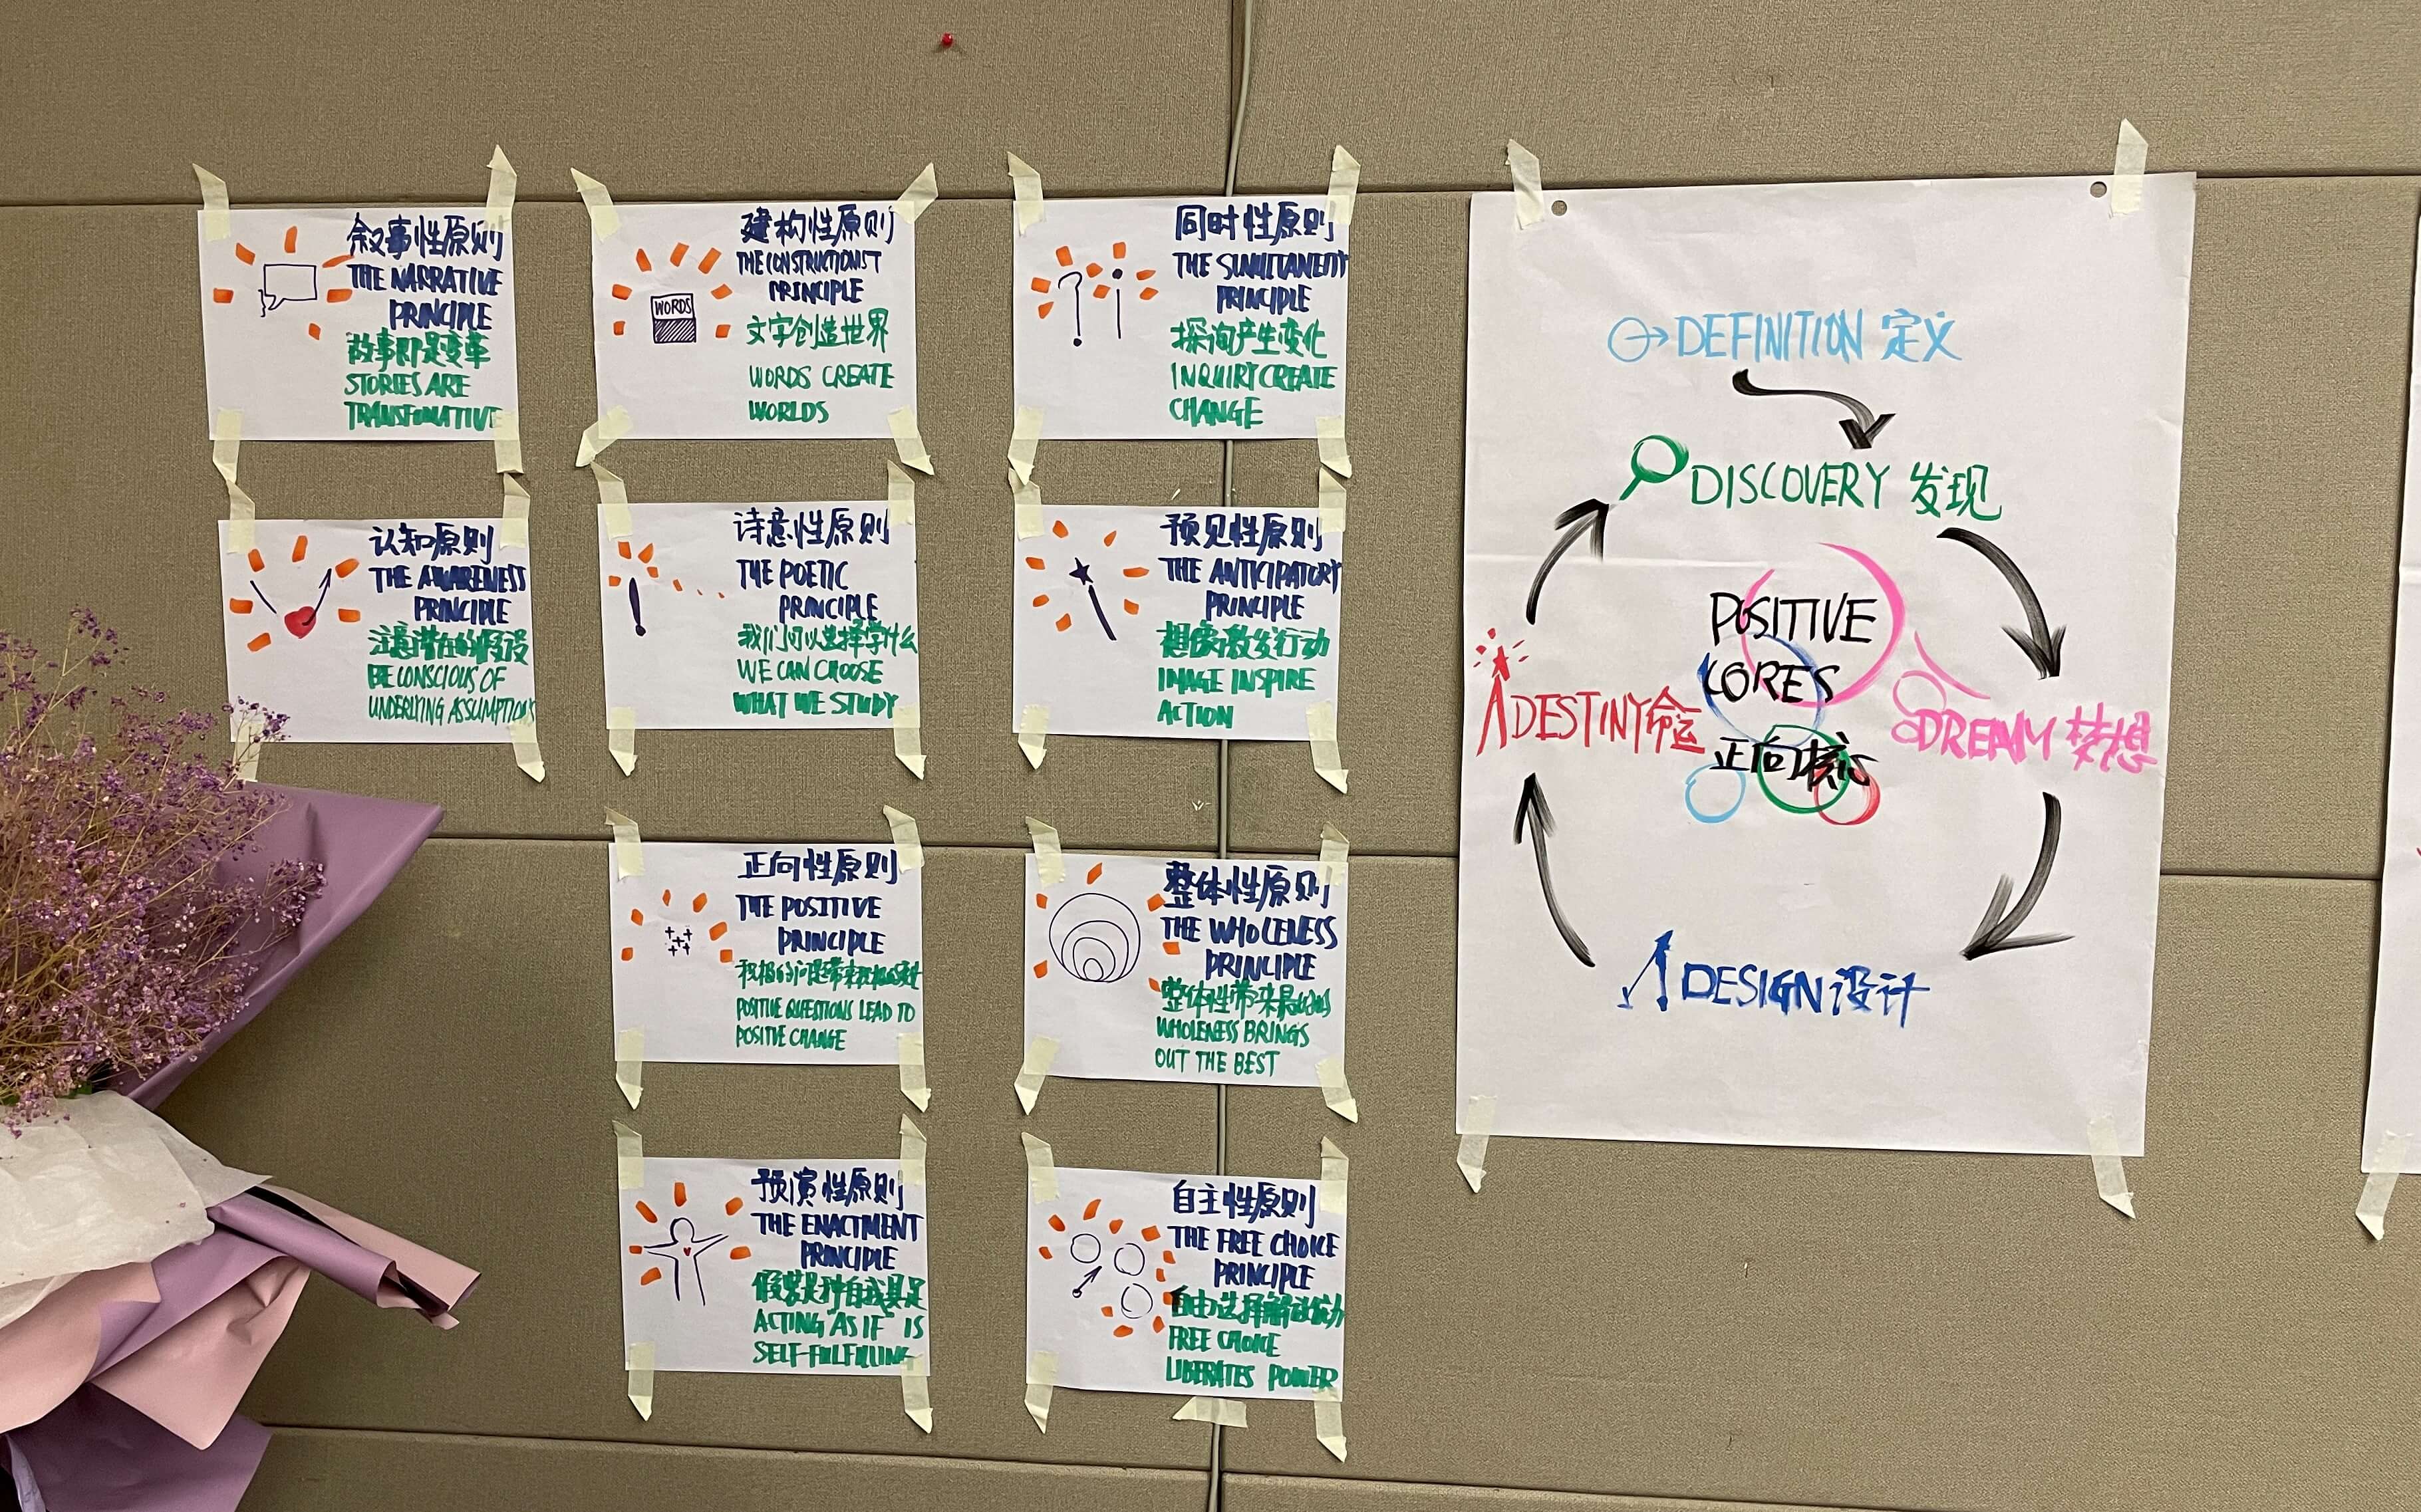 叙事性原则
THE NARRATIVE
PRINCIPLE
故事即是变革
STORIES ARE
TRANSFOMATIVE
建构性原则
THE CONSTRUCTIONIST
PRINCIPLE
WORDS
文字创造世界
WORDS CREATE
WORLDS
同时性原则
THE SIMULTANEITY
PRINCIPLE
探询产生变化
INQUIRY CREATE
CHANGE
认知原则
THE AWARENESS
PRINCIPLE
注意潜在的假设
BE CONSCIOUS OF
UNDERLYING ASSUMPTIONS
诗意性原则
THE POETIC
PRINCIPLE
我们可以选择学什么
WE CAN CHOOSE
WHAT WE STUDY
预见性原则
THE ANTICIPATORY
PRINCIPLE
想象激发行动
IMAGE INSPIRE
ACTION
正向性原则
THE POSITIVE
PRINCIPLE
POSITIVE QUESTIONS LEAD TO
POSITIVE CHANGE
整体性原则
THE WHOLENESS
PRINCIPLE
整体性带来最好的
WHOLENESS BRINGS
OUT THE BEST
预演性原则
THE ENACTMENT
PRINCIPLE
ACTING "AS IF" IS
SELF-FULFILLING
自主性原则
THE FREE CHOICE
PRINCIPLE
自由选择
FREE CHOICE
LIBERATES POWER
DEFINITION 定义
DISCOVERY 发现
POSITIVE
CORES
正向核心
DESTINY 命运
DREAM 梦想
DESIGN 设计